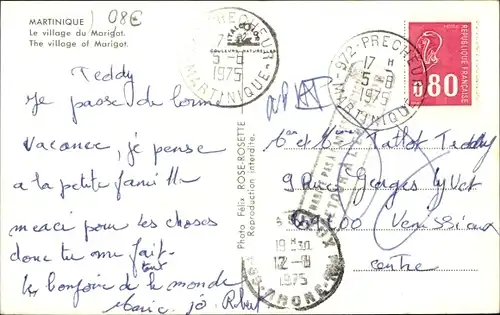 MARTINIQUE
Le village du Marigot.
The village of Marigot.
08€
972-PRECHEUR
17 H
5-8
1975
MARTINIQUE
REPUBLIQUE FRANÇAISE
0,80
Teddy
Je passe de bonne
vacance, je pense
a la petite famille
merci pour les choses
donc tu me fait
tout
les bonjoir de le monde
Marie. jo. Robert
Photo Félix ROSE-ROSETTE
Reproduction interdite.
972-PRECHEUR
17 H
5-8
1975
MARTINIQUE
et
Teddy
9 Rue Georges Lyvet
Venissieux
centre
19 H 30
12-8
1975
RHONE